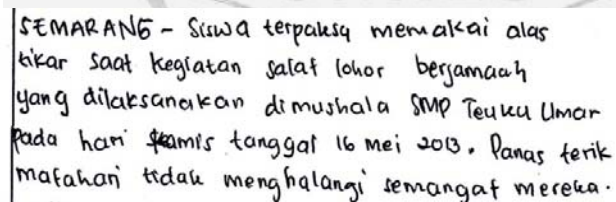 SEMARANG - Siswa terpaksa memakai alas
tikar saat kegiatan salat lohor berjamaah
yang dilaksanakan dimushala SMP Teuku Umar
pada hari kamis tanggal 16 mei 2013. Panas terik
matahari tidak menghalangi semangat mereka.